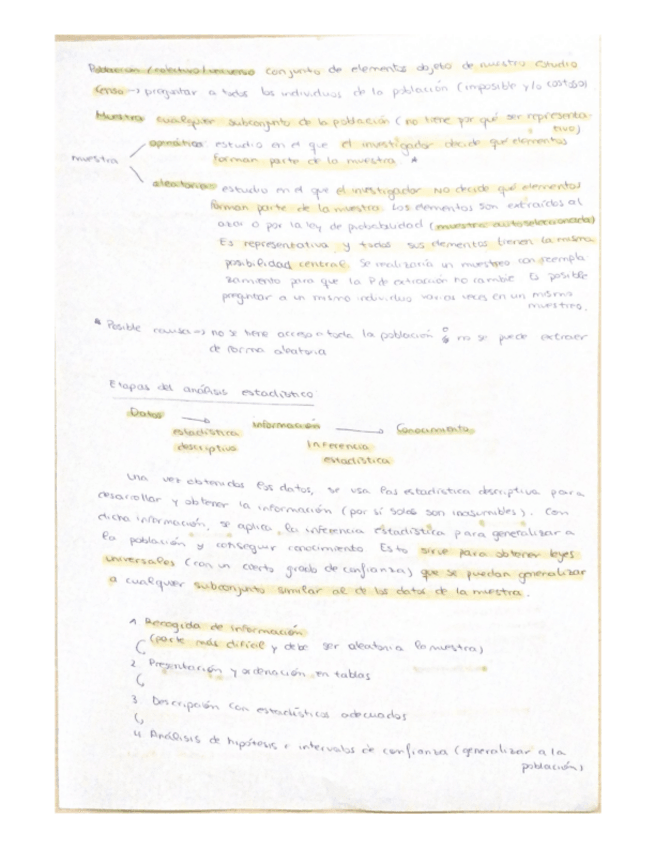 Población / colectivo / universo conjunto de elementos objeto de nuestro estudio
Censo → preguntar a todos los individuos de la población (imposible y/o costoso)
Muestra cualquier subconjunto de la población (no tiene por qué ser representa-
tivo)
muestra
opinática estudio en el que el investigador decide qué elementos
forman parte de la muestra *
aleatoria estudio en el que el investigador NO decide qué elementos
forman parte de la muestra. Los elementos son extraídos al
azar o por la ley de probabilidad (muestra autoseleccionada)
Es representativa y todos sus elementos tienen la misma
posibilidad central. Se realizaría un muestreo con reempla
zamiento para que la P de extracción no cambie. Es posible
preguntar a un mismo individuo varias veces en un mismo
muestreo.
* Posible causa → no se tiene acceso a toda la población o no se puede extraer
de forma aleatoria
Etapas del análisis estadístico
Datos → información → Conocimiento
estadística descriptiva
Inferencia estadística
Una vez obtenidos los datos, se usa la estadística descriptiva para
desarrollar y obtener la información (por sí solos son inasumibles). Con
dicha información, se aplica la inferencia estadística para generalizar a
la población y conseguir conocimiento. Esto sirve para obtener leyes
universales (con un cierto grado de confianza) que se puedan generalizar
a cualquier subconjunto similar al de los datos de la muestra.
1 Recogida de información
(parte más difícil y debe ser aleatoria la muestra)
2. Presentación y ordenación en tablas
3 Descripción con estadísticos adecuados
4 Análisis de hipótesis e intervalos de confianza (generalizar a la
población)